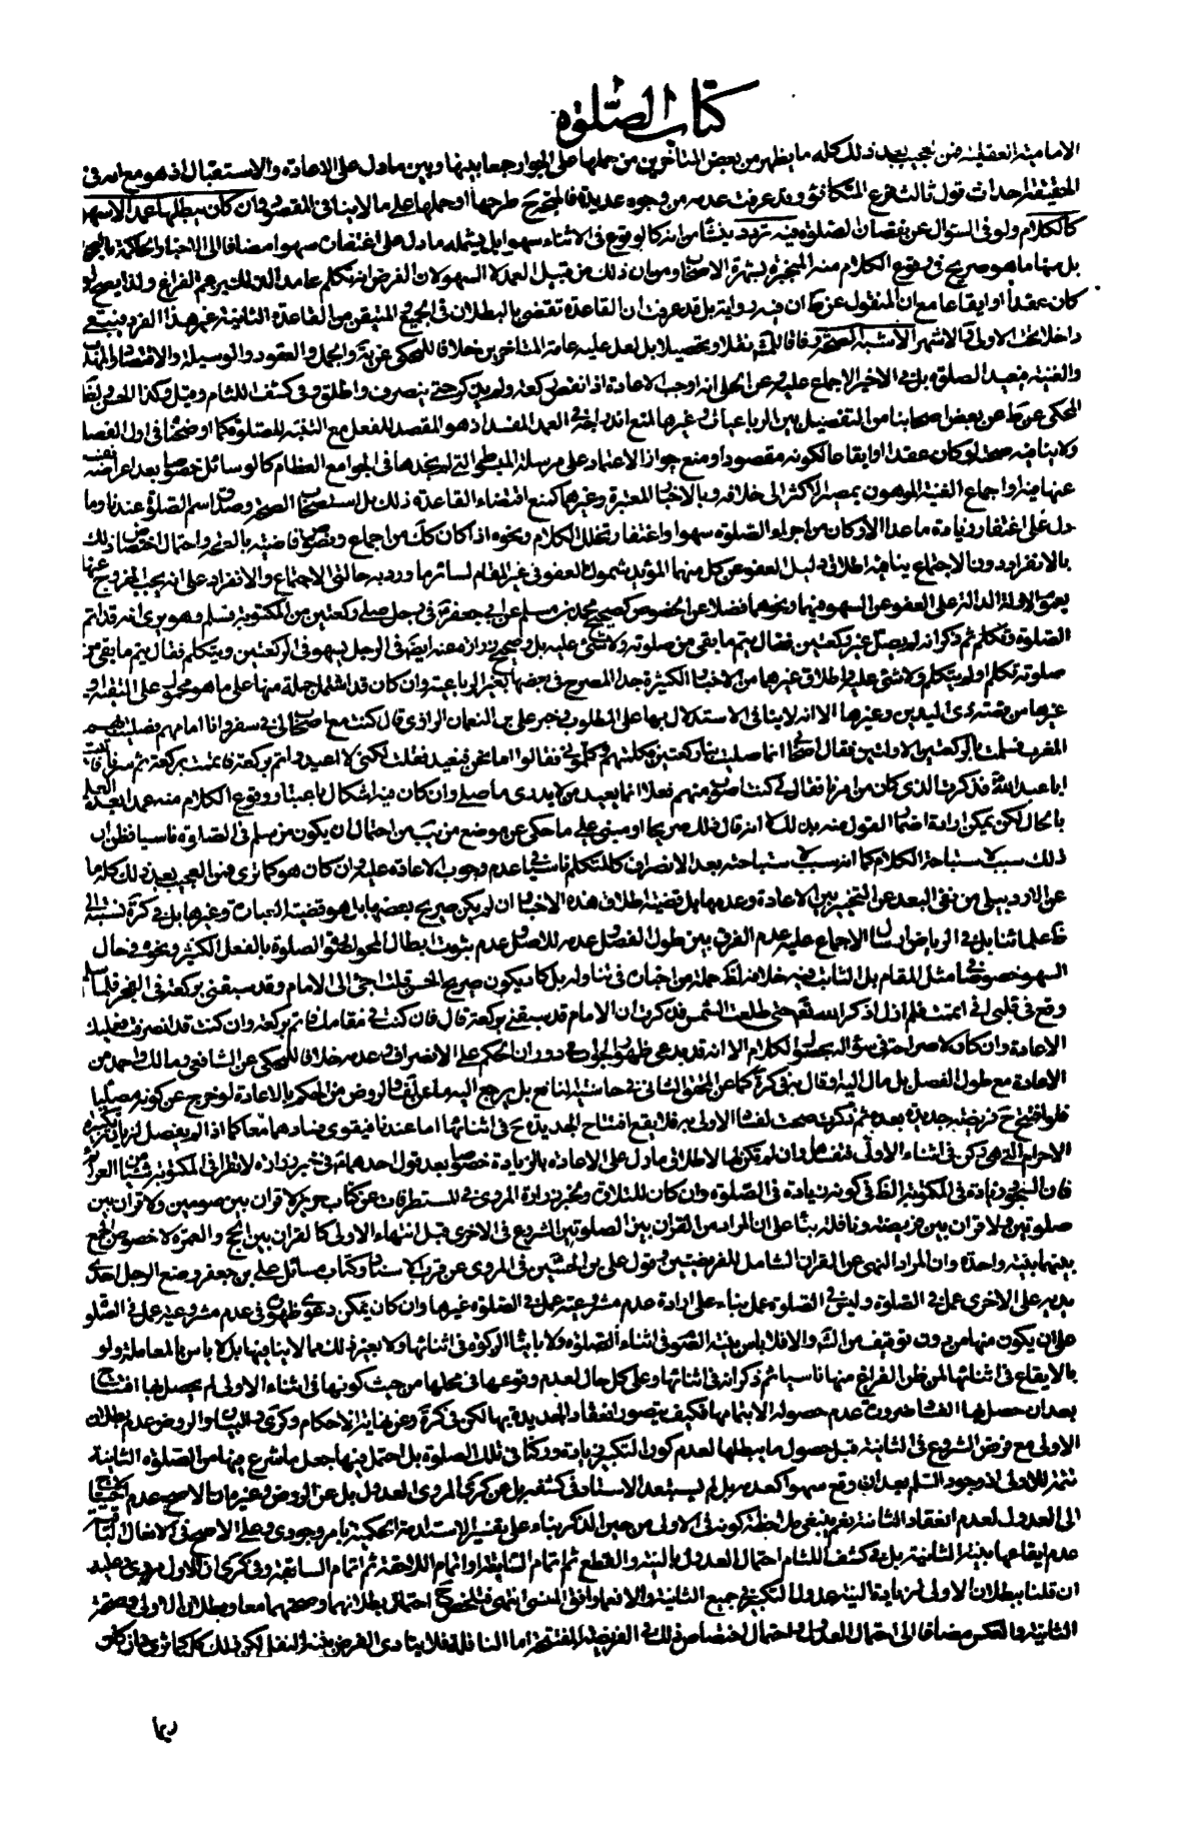 كتاب الصلوة
الامامية العقلية فمن عجيب بعد ذلك كله ما يظهر من بعض المتأخرين من حملها على الجواز جمعا بينها وبين ما دل على الاعادة والاستقبال اذ هو مع انه في
الحقيقة احداث قول ثالث فرع التكافؤ وقد عرفت عدمه من وجوه عديدة فالمتجه ح طرحها او حملها على ما لا ينافي المقصود وان كان يبطلها عمدا لا سهوا
كالكلام ولو في السؤال عن نقصان الصلوة فيه تردد ينشأ من انه كالوقوع في الاثناء سهوا بل يشمله ما دل على اغتفارات سهوا مضافا الى الاخبار الحاكمة بالصحة
بل منها ما هو صريح في وقوع الكلام منه المنجبرة بشهرة الاصحاب ومن ان ذلك من قبيل العمد لا السهو لان الفرض انه تكلم عامدا لتوهم الفراغ ولذا يصح لو
كان عقدا او ايقاعا مع ان المنقول عن ط ان فيه رواية بل قد عرفت ان القاعدة تقتضي البطلان في الجميع المتيقن من القاعدة الثانية غير هذا الفرد فيبقى
داخلا تحت الاولى والاشهر الاشبه الصحة وفاقا للمشهور نقلا وتحصيلا بل لعل عليه عامة المتأخرين خلافا للمحكي عن ية والجمل والعقود والوسيلة والاقتصاد والمهذب
والغنية فيعيد الصلوة بل في الاخير الاجماع عليه وعن الحلبي انه اوجب الاعادة اذا نقص ركعة ولم يذكر حتى ينصرف واطلق وفي كشف اللثام وقيل وكذا الحسن
المحكي عن ط عن بعض اصحابنا من التفصيل بين الرباعيات وغيرها لمنع اندراجه في العمد المفسد اذ هو القصد للفعل مع التنبه للصلوة كما اوضحناه في اول الفصل
ولا ينافيه صحته لو كان عقدا او ايقاعا لكونه مقصودا ومنع جواز الاعتماد على مرسلة المبسوط التي لم نجدها في الجوامع العظام كالوسائل خصوصا بعد اعراضه نفسه
عنها فيه واجماع الغنية الموهون بمصير الاكثر الى خلافه وبالاخبار المعتبرة وغيرها كمنع اقتضاء القاعدة ذلك بل استصحاب الصحة وصدق اسم الصلوة عندنا وما
دل على اغتفار زيادة ما عدا الاركان من اجزاء الصلوة سهوا واغتفار تخلل الكلام ونحوه اذا كان كك من اجماع ونصوص قاضية بالصحة واحتمال اختصاص ذلك
بالانفراد دون الاجتماع ينافيه اطلاق دليل العفو عن كل منهما المؤيد بشمول العفو في غير المقام لسائر ما ورد به حالتي الاجتماع والانفراد على انه يجب الخروج عنها
بعموم الادلة الدالة على العفو عن السهو فيها ونحوهما فضلا عن الخصوص كصحيح محمد بن مسلم عن ابي جعفر ع في رجل صلى ركعتين من المكتوبة فسلم وهو يرى انه قد اتم
الصلوة فتكلم ثم ذكر انه لم يصل غير ركعتين فقال يتم ما بقي من صلوته ولا شيء عليه بل وصحيح زرارة عنه ايضا في الرجل يسهو في الركعتين ويتكلم فقال يتم ما بقي من
صلوته تكلم او لم يتكلم ولا شيء عليه واطلاق غيرهما من الاخبار الكثيرة جدا المصرح في بعضها بغير الرباعية وان كان قد اشتمل جملة منها على ما هو محمول على التقية او
غيرها من قصة ذي اليدين وغيرها الا انه لا ينافي الاستدلال بها على المطلوب وخبر علي بن النعمان الرازي قال كنت مع اصحابي في سفر وانا امامهم فصليت بهم
المغرب فسلمت في الركعتين الاولتين فقال اصحابي انما صليت بنا ركعتين فكلمتهم وكلموني فقالوا اما نحن فنعيد فقلت لكني لا اعيد واتم بركعة فاتممت بركعة ثم سرنا فاتيت
ابا عبد الله فذكرت الذي كان من امرنا فقال لي كنت اصوب منهم فعلا انما يعيد من لا يدري ما صلى وان كان فيه اشكال باعتبار وقوع الكلام منه عمدا بعد العلم
بالحال لكن يمكن ارادة اضمار القول منه بذلك لا انه قال ذلك صريحا او مبني على ما حكي عن موضع من يب من احتمال ان يكون من سلم في الصلوة ناسيا فظن ان
ذلك سبب لاستباحة الكلام كما انه سبب لاستباحته بعد الانصراف كالمتكلم ناسيا في عدم وجوب الاعادة عليه وان كان هو كما ترى ومن العجيب بعد ذلك كله ما
عن الاردبيلي من نفي البعد عن التخيير بين الاعادة وعدمها بل قضية اطلاق هذه الاخبار ان لم يكن صريح بعضها بل هو قضية العبارة وغيرها بل في كرة نسبته الى
ظ علمائنا بل في الرياض ارسال الاجماع عليه عدم الفرق بين طول الفصل وعدمه للاصل وعدم ثبوت ابطال المحو لحق الصلوة بالفعل الكثير ونحوه في حال
السهو خصوصا في مثل المقام بل الثابت فيه خلافه لظ جملة من اخباره في تناوله بل كاد يكون صريح الحسن قلت اجيء الى الامام وقد سبقني بركعة في الفجر فلما سلم
وقع في قلبي اني اتممت فلم ازل اذكر الله حتى طلعت الشمس فلما طلعت ذكرت ان الامام قد سبقني بركعة قال فان كنت في مقامك فاتم بركعة وان كنت قد انصرفت فعليك
الاعادة وان كان لا صراحة في سؤاله بحصول الكلام الا انه قد يدعى ظهور الجواب في دوران الحكم على الانصراف وعدمه خلافا للمحكي عن الشافعي ومالك واحمد من
الاعادة مع طول الفصل بل مال اليه وقال به في كرة كما عن المحقق الثاني في حاشية النافع بل يرجع اليه ما عن لف والروض من الحكم بالاعادة لو خرج عن كونه مصليا
فلو افتتح ح فريضة جديدة بعده ثم تذكر صحت لفساد الاولى به فلا يقع افتتاح الجديدة ح في اثنائها اما عندنا فيقوى فسادهما معا كما اذا لم يفصل لزيادة تكبيرة
الاحرام التي هي ركن في اثناء الاولى فتفسد وان لم تكن لها لاطلاق ما دل على الاعادة بالزيادة خصوصا بعد قول احدهما ع في خبر زرارة لا تقرأ في المكتوبة بشيء من العزائم
فان السجود زيادة في المكتوبة الظ في كونه زيادة في الصلوة وان كان للتلاوة وخبر زرارة المروي في المستطرفات عن كتاب حريز لا قران بين صومين ولا قران بين
صلوتين ولا قران بين فريضة ونافلة بناء على ان المراد من القران بين الصلوتين الشروع في الاخرى قبل انتهاء الاولى كالقران بين الحج والعمرة لا خصوص الجمع
بينهما بنية واحدة وان المراد النهي عن القران الشامل للفريضتين وقول علي بن الحسين في المروي عن قرب الاسناد وكتاب مسائل علي بن جعفر وضع الرجل احدى
يديه على الاخرى عمل في الصلوة وليس في الصلوة عمل بناء على ارادة عدم مشروعية عمل في الصلوة غيرها وان كان يمكن دعوى ظهوره في عدم مشروعية عمل في الصلوة
على ان يكون منها من دون توقيف من الشرع والا فلا باس بنية الصوم في اثناء الصلوة ولا بايتاء الزكوة في اثنائها ولا بغير ذلك مما لا ينافيها بل لا باس بالمعاملة ولو
بالايقاع في اثنائها لمن ظن الفراغ منها ناسيا ثم ذكر انه في اثنائها وعلى كل حال لعدم وقوعها في محلها من حيث كونها في اثناء الاولى لم يحصل بها افتتاح
بعد ان حصل بها الفساد ضرورة عدم حصوله الا بتمامها فكيف يتصور انعقاد الجديدة بها لكن في كرة وعن نهاية الاحكام وكرى والبيان والروض عدم بطلان
الاولى مع فرض الشروع في الثانية قبل حصول ما يبطلها لعدم كون التكبير زيادة ركنا في تلك الصلوة بل احتمل فيها جعل ما شرع فيها من الصلوة الثانية
تتمة للاولى اذ وجود السلم بعد ان وقع سهوا كعدمه بل لم يستبعد الاستاد في كشفه بل عن كرى المروي العدول بل عن الروض وغيره ان الاصح عدم احتياج
الى العدول لعدم انعقاد الثانية نعم ينبغي ملاحظة كونه في الاولى من حين الذكر بناء على تفسير الاستدامة الحكمية بامر وجودي وعلى الاصح في الافعال الباقية
عدم ايقاعها بنية الثانية بل في كشف اللثام احتمال العدول بالنية والقطع ثم اتمام السابقة واتمام اللاحقة ثم اتمام السابقة وفي كرى ان الاول مروي عليه
ان قلنا ببطلان الاولى لزيادة النية عدولا التكبير في جميع الثانية والا فهما وافق المنسي انتهى فتلخص ح احتمال بطلانهما وصحتهما معا وبطلان الاولى وصحة
الثانية والعكس مضافا الى احتمال العدول واحتمال اختصاص ذلك في الفريضة المفتتحة اما النافلة فلا يتادى الفرض بنية النفل لكن ذلك كله كما ترى وان كان
ربما